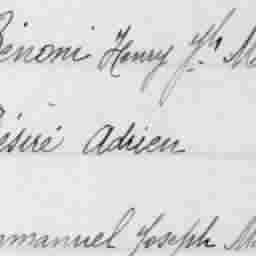 Bénoni Henry Jh M
Désiré Adrien
Emmanuel Joseph M